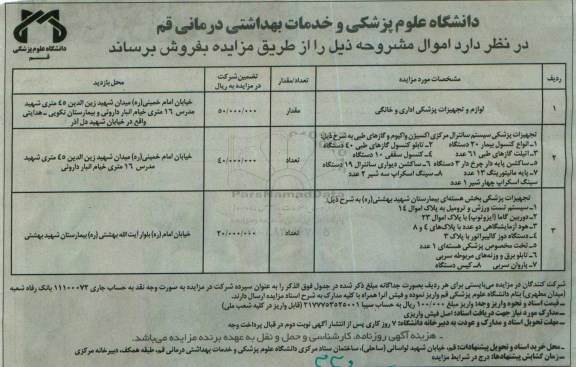 دانشگاه علوم پزشکی و خدمات بهداشتی درمانی قم
در نظر دارد اموال مشروحه ذیل را از طریق مزایده بفروش برساند
دانشگاه علوم پزشکی
قم
ردیف
مشخصات مورد مزایده
تعداد/مقدار
تضمین شرکت
در مزایده به ریال
محل بازدید
۱
لوازم و تجهیزات پزشکی اداری و خانگی
مقدار
۵۰/۰۰۰/۰۰۰
خیابان امام خمینی(ره) میدان شهید زین الدین ۴۵ متری شهید
مدرس ۱۶ متری خیام انبار داروئی و بیمارستان نکویی ـ هدایتی
واقع در خیابان شهید دل آذر
۲
تجهیزات پزشکی سیستم سانترال مرکزی اکسیژن واکیوم و گازهای طبی به شرح ذیل:
۱ـ انواع کنسول بیمار ۲۰ دستگاه ۲ـ تابلو کنسول گازهای طبی ۴۰ دستگاه
۳ـ اتلت گازهای طبی ۶۱ عدد ۴ـ کنسول سقفی ۱۰ دستگاه
۵ـ ساکشن پایه دار چرخ دار ۳ دستگاه ۶ـ ساکشن دیواری سانترال ۱۹ دستگاه
۷ـ پایه مانیتورینگ ۱۳ عدد ۸ـ سینگ اسکراپ سه شیر ۲ عدد
سینگ اسکراپ چهار شیر ۱ عدد
تعداد
۴۰/۰۰۰/۰۰۰
خیابان امام خمینی(ره) میدان شهید زین الدین ۴۵ متری شهید
مدرس ۱۶ متری خیام انبار داروئی
۳
تجهیزات پزشکی بخش هسته‌ای بیمارستان شهید بهشتی(ره) به شرح ذیل:
۱ـ سیستم تست ورزش و ترومیل به پلاک اموال ۱۴
۲ـ دوربین گاما (ایزوتوپ) با پلاک اموال ۲۳
۳ـ هود آزمایشگاهی دو عدد با پلاک‌های ۴ و ۸
۴ـ دستگاه دوز کالیبراتور با پلاک ۳
۵ـ تخت مخصوص پزشکی هسته‌ای ۱ عدد
۶ـ تابلو برق و وزنه‌های مربوطه سربی
۷ـ پاروان سربی ۸ـ کیس دستگاه
تعداد
۲۰/۰۰۰/۰۰۰
خیابان امام(ره) بلوار آیت الله بهشتی (ره) بیمارستان شهید بهشتی
ParsNamadData
شرکت کنندگان در مزایده می‌بایستی برای هر ردیف بصورت جداگانه مبلغ ذکر شده در جدول فوق الذکر را به عنوان سپرده شرکت در مزایده به صورت وجه نقد به حساب جاری ۱۱۱۰۰۰۷۲ بانک رفاه شعبه
(میدان مطهری) بنام دانشگاه علوم پزشکی قم واریز نموده و فیش آنرا همراه با کلیه مدارک به شرح اسناد مزایده ارسال دارند.
ـ قیمت اسناد و نحوه واریز وجه: واریز مبلغ ۱۰۰/۰۰۰ ریال به حساب سیبا ۲۱۷۷۷۵۳۵۲۵۰۰۱ (قابل واریز در کلیه شعب ملی)
ـ مدارک مورد نیاز جهت دریافت اسناد: اصل فیش واریزی
ـ مهلت تحویل اسناد و مدارک و عودت به دبیرخانه دانشگاه: ۷ روز کاری پس از انتشار آگهی نوبت دوم در قبال پرداخت وجه
ـ هزینه آگهی روزنامه، کارشناسی و حمل و نقل به عهده برنده مزایده می‌باشد.
ـ محل خرید اسناد و تحویل پیشنهادات: قم، خیابان شهید لواسانی (ساحلی)، ساختمان ستاد مرکزی دانشگاه علوم پزشکی و خدمات بهداشتی درمانی قم، طبقه همکف، دبیرخانه مرکزی
ـ زمان گشایش پیشنهادها: درج در شرایط مزایده